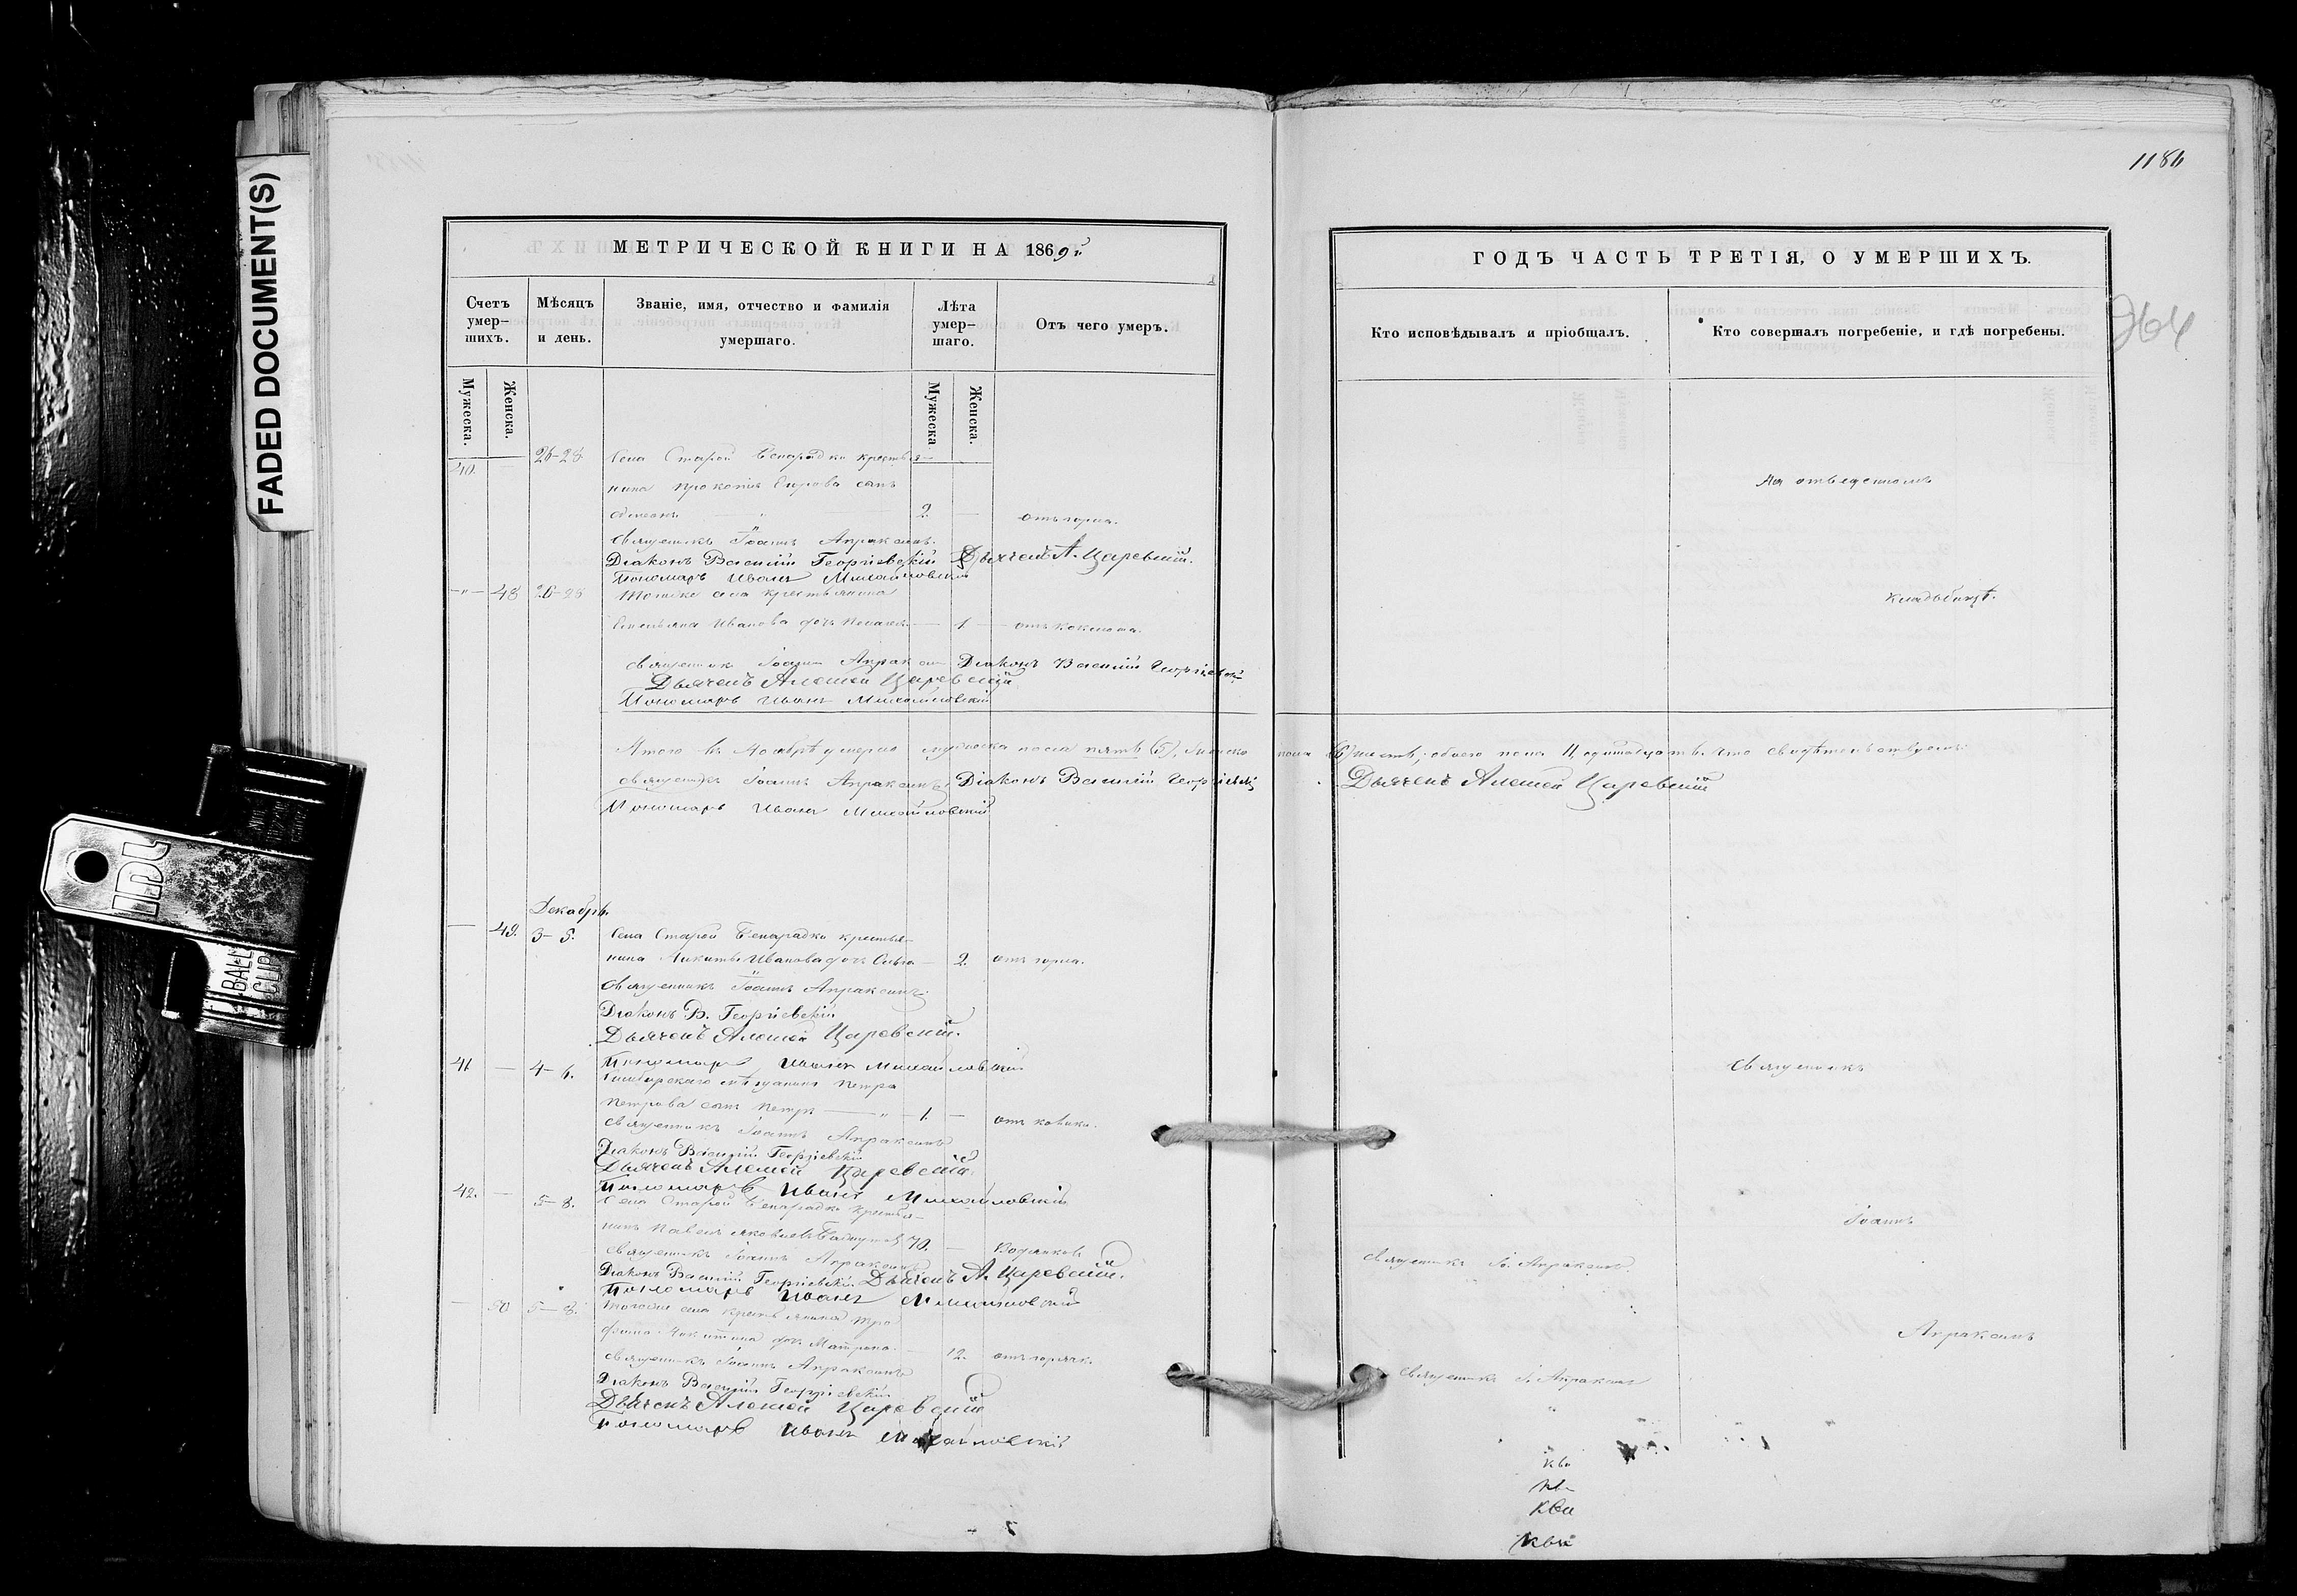 FADED DOCUMENT(S)
1186
264
МЕТРИЧЕСКОЙ КНИГИ НА 1869й
Счетъ умер-шихъ.
Мѣсяцъ и день.
Званіе, имя, отчество и фамилія умершаго.
Лѣта умер-шаго.
Отъ чего умеръ.
Мужеска.
Женска.
Мужеска
Женска.
40. — 26-28 Села Старой Бекорадки крестья-
нина Прокопія сынъ
Симеонъ — 2. — отъ горла.
Священникъ Іоаннъ Апраксинъ.
Діаконъ Василій Георгіевскій Дьячекъ А. Царевскій.
Пономарь Иванъ Михайловскій
—„— 48 26-28 Тогоже села крестьянина
Емельяна Иванова дочь Пелагея — 1. — отъ коклюша.
Священникъ Іоаннъ Апраксинъ Діаконъ Василій Георгіевскій
Дьячекъ Алексей Царевскій
Пономарь Иванъ Михайловскій
Итого въ Ноябрѣ умерло мужеска пола пять (5), женска
Священникъ Іоаннъ Апраксинъ Діаконъ Василій Георгіевскій
Пономарь Иванъ Михайловскій
Декабрь.
— 49. 3-5. Села Старой крестья-
нина Никиты Иванова дочь Ольга — 2. отъ горла.
Священникъ Іоаннъ Апраксинъ.
Діаконъ В. Георгіевскій
Дьячекъ Алексей Царевскій.
Пономарь Иванъ Михайловскій
41 — 4-6. Симбирскаго мѣщанина Петра
Петрова сынъ Петръ —„— 1. — отъ
Священникъ Іоаннъ Апраксинъ
Діаконъ Василій Георгіевскій
Дьячекъ Алексей Царевскій.
Пономарь Иванъ Михайловскій
42. — 5-8. Села Старой крестья-
нинъ Павелъ Яковлевъ 70. — Водянкой
Священникъ Іоаннъ Апраксинъ
Діаконъ Василій Георгіевскій Дьячекъ А. Царевскій.
Пономарь Иванъ Михайловскій
— 50 5-8. Тогоже села крестьянина Тро-
фима Никитина дочь Матрона — 12. отъ горячк.
Священникъ Іоаннъ Апраксинъ
Діаконъ Василій Георгіевскій
Дьячекъ Алексей Царевскій
Пономарь Иванъ Михайловскій
ГОДЪ ЧАСТЬ ТРЕТІЯ, О УМЕРШИХЪ.
Кто исповѣдывалъ и пріобщалъ.
Кто совершалъ погребеніе, и гдѣ погребены.
На отведенномъ
кладбищѣ.
пола (6) шесть; обоего пола 11 одинадцать. Что свидѣтельствуемъ:
Дьячекъ Алексей Царевскій
Священникъ
Іоаннъ
Священникъ Іо. Апраксинъ.
Апраксинъ
Священникъ І. Апраксинъ
BALL CLIP